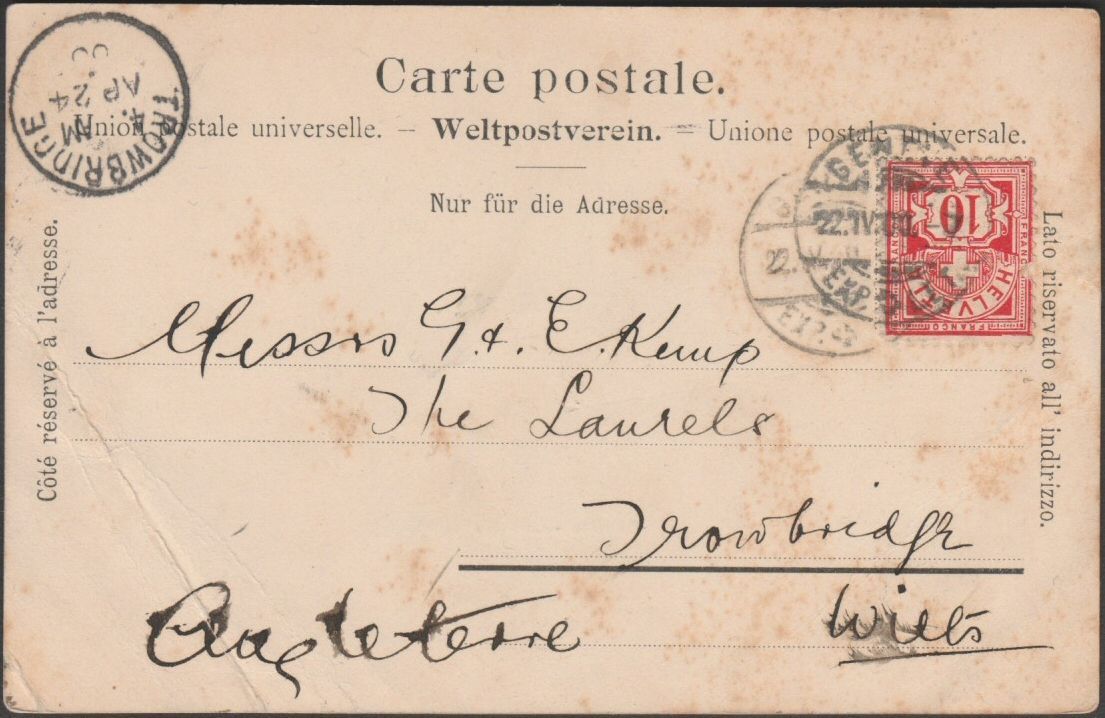 Carte postale.
Union postale universelle. — Weltpostverein. — Unione postale universale.
Nur für die Adresse.
Côté réservé à l'adresse.
Lato riservato all' indirizzo.
TROWBRIDGE
4. AM
AP 24
00
22.IV.00. 7
EXP.
22.
10
FRANCO
HELVETIA
Messrs G. & E. Kemp
The Laurels
Trowbridge
Wilts
Angleterre